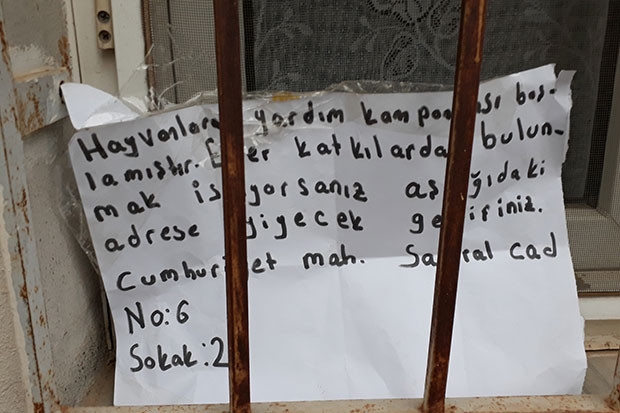 Hayvanlara yardım kampanyası baş-
lamıştır. Eğer katkılarda bulun-
mak istiyorsanız aşağıdaki
adrese yiyecek getiriniz.
Cumhuriyet mah. cad
No:6
Sokak:2